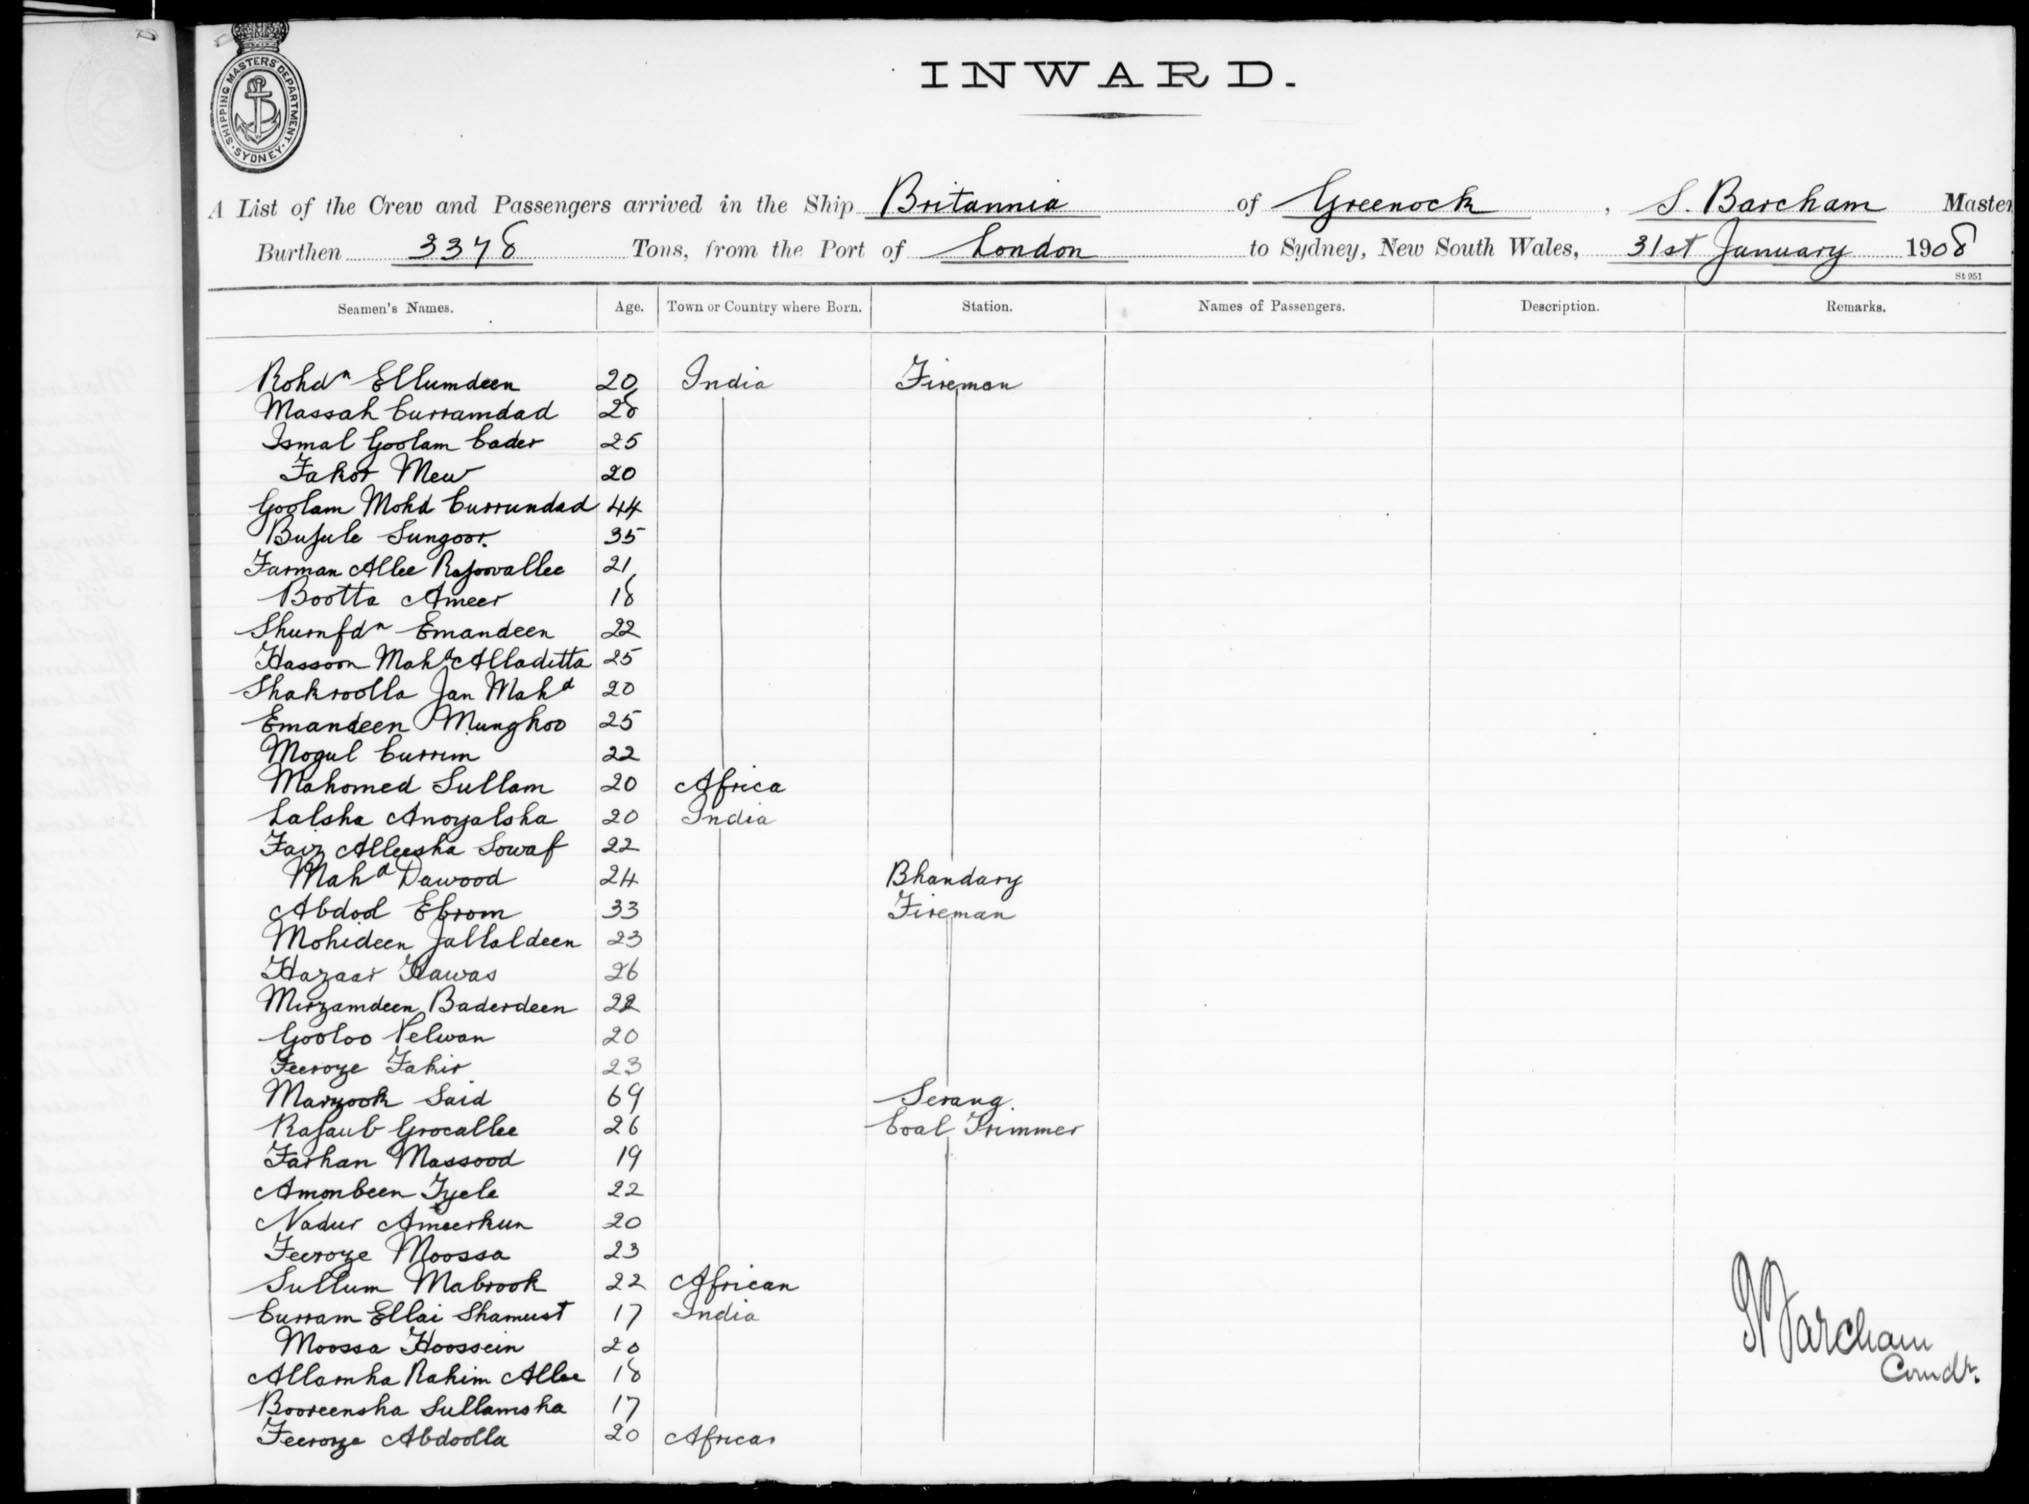 SHIPPING MASTERS DEPARTMENT. SYDNEY.
INWARD.
A List of the Crew and Passengers arrived in the Ship Britannia of Greenock, S. Barcham Master
Burthen 3378 Tons, from the Port of London to Sydney, New South Wales, 31st January 1908
St 951
Seamen's Names. Age. Town or Country where Born. Station. Names of Passengers. Description. Remarks.
Rohdn Ellumdeen 20 India Fireman
Massah Curramdad 28
Ismal Goolam Cader 25
Fakor Mew 20
Goolam Mohd Currundad 44
Bujule Sungoor. 35
Farman Allee Rajoovallee 21
Bootta Ameer 18
Shurnfdn Emandeen 22
Hassoon Mahd Alladitta 25
Shakroolla Jan Mahd 20
Emandeen Munghoo 25
Mogul Currim 22
Mahomed Sullam 20 Africa
Lalsha Anoyalsha 20 India
Faiz Alleesha Sowaf 22
Mahd Dawood 24 Bhandary
Abdool Ebrom 33 Fireman
Mohideen Jallaldeen 23
Hazaar Kawas 26
Mirzamdeen Baderdeen 22
Gooloo Pelwan 20
Feeroze Fakir 23
Marzook Said 69 Serang.
Rajaub Grocallee 26 Coal Trimmer
Farhan Massood 19
Amonbeen Tyele 22
Nadur Ameerkun 20
Feeroze Moossa 23
Sullum Mabrook 22 African
Curram Ellai Shamust 17 India
Moossa Hoossein 20
Allamha Rahim Allee 18
Booreensha Sullamsha 17
Feeroze Abdoolla 20 Africa
S Barcham
Comdr.